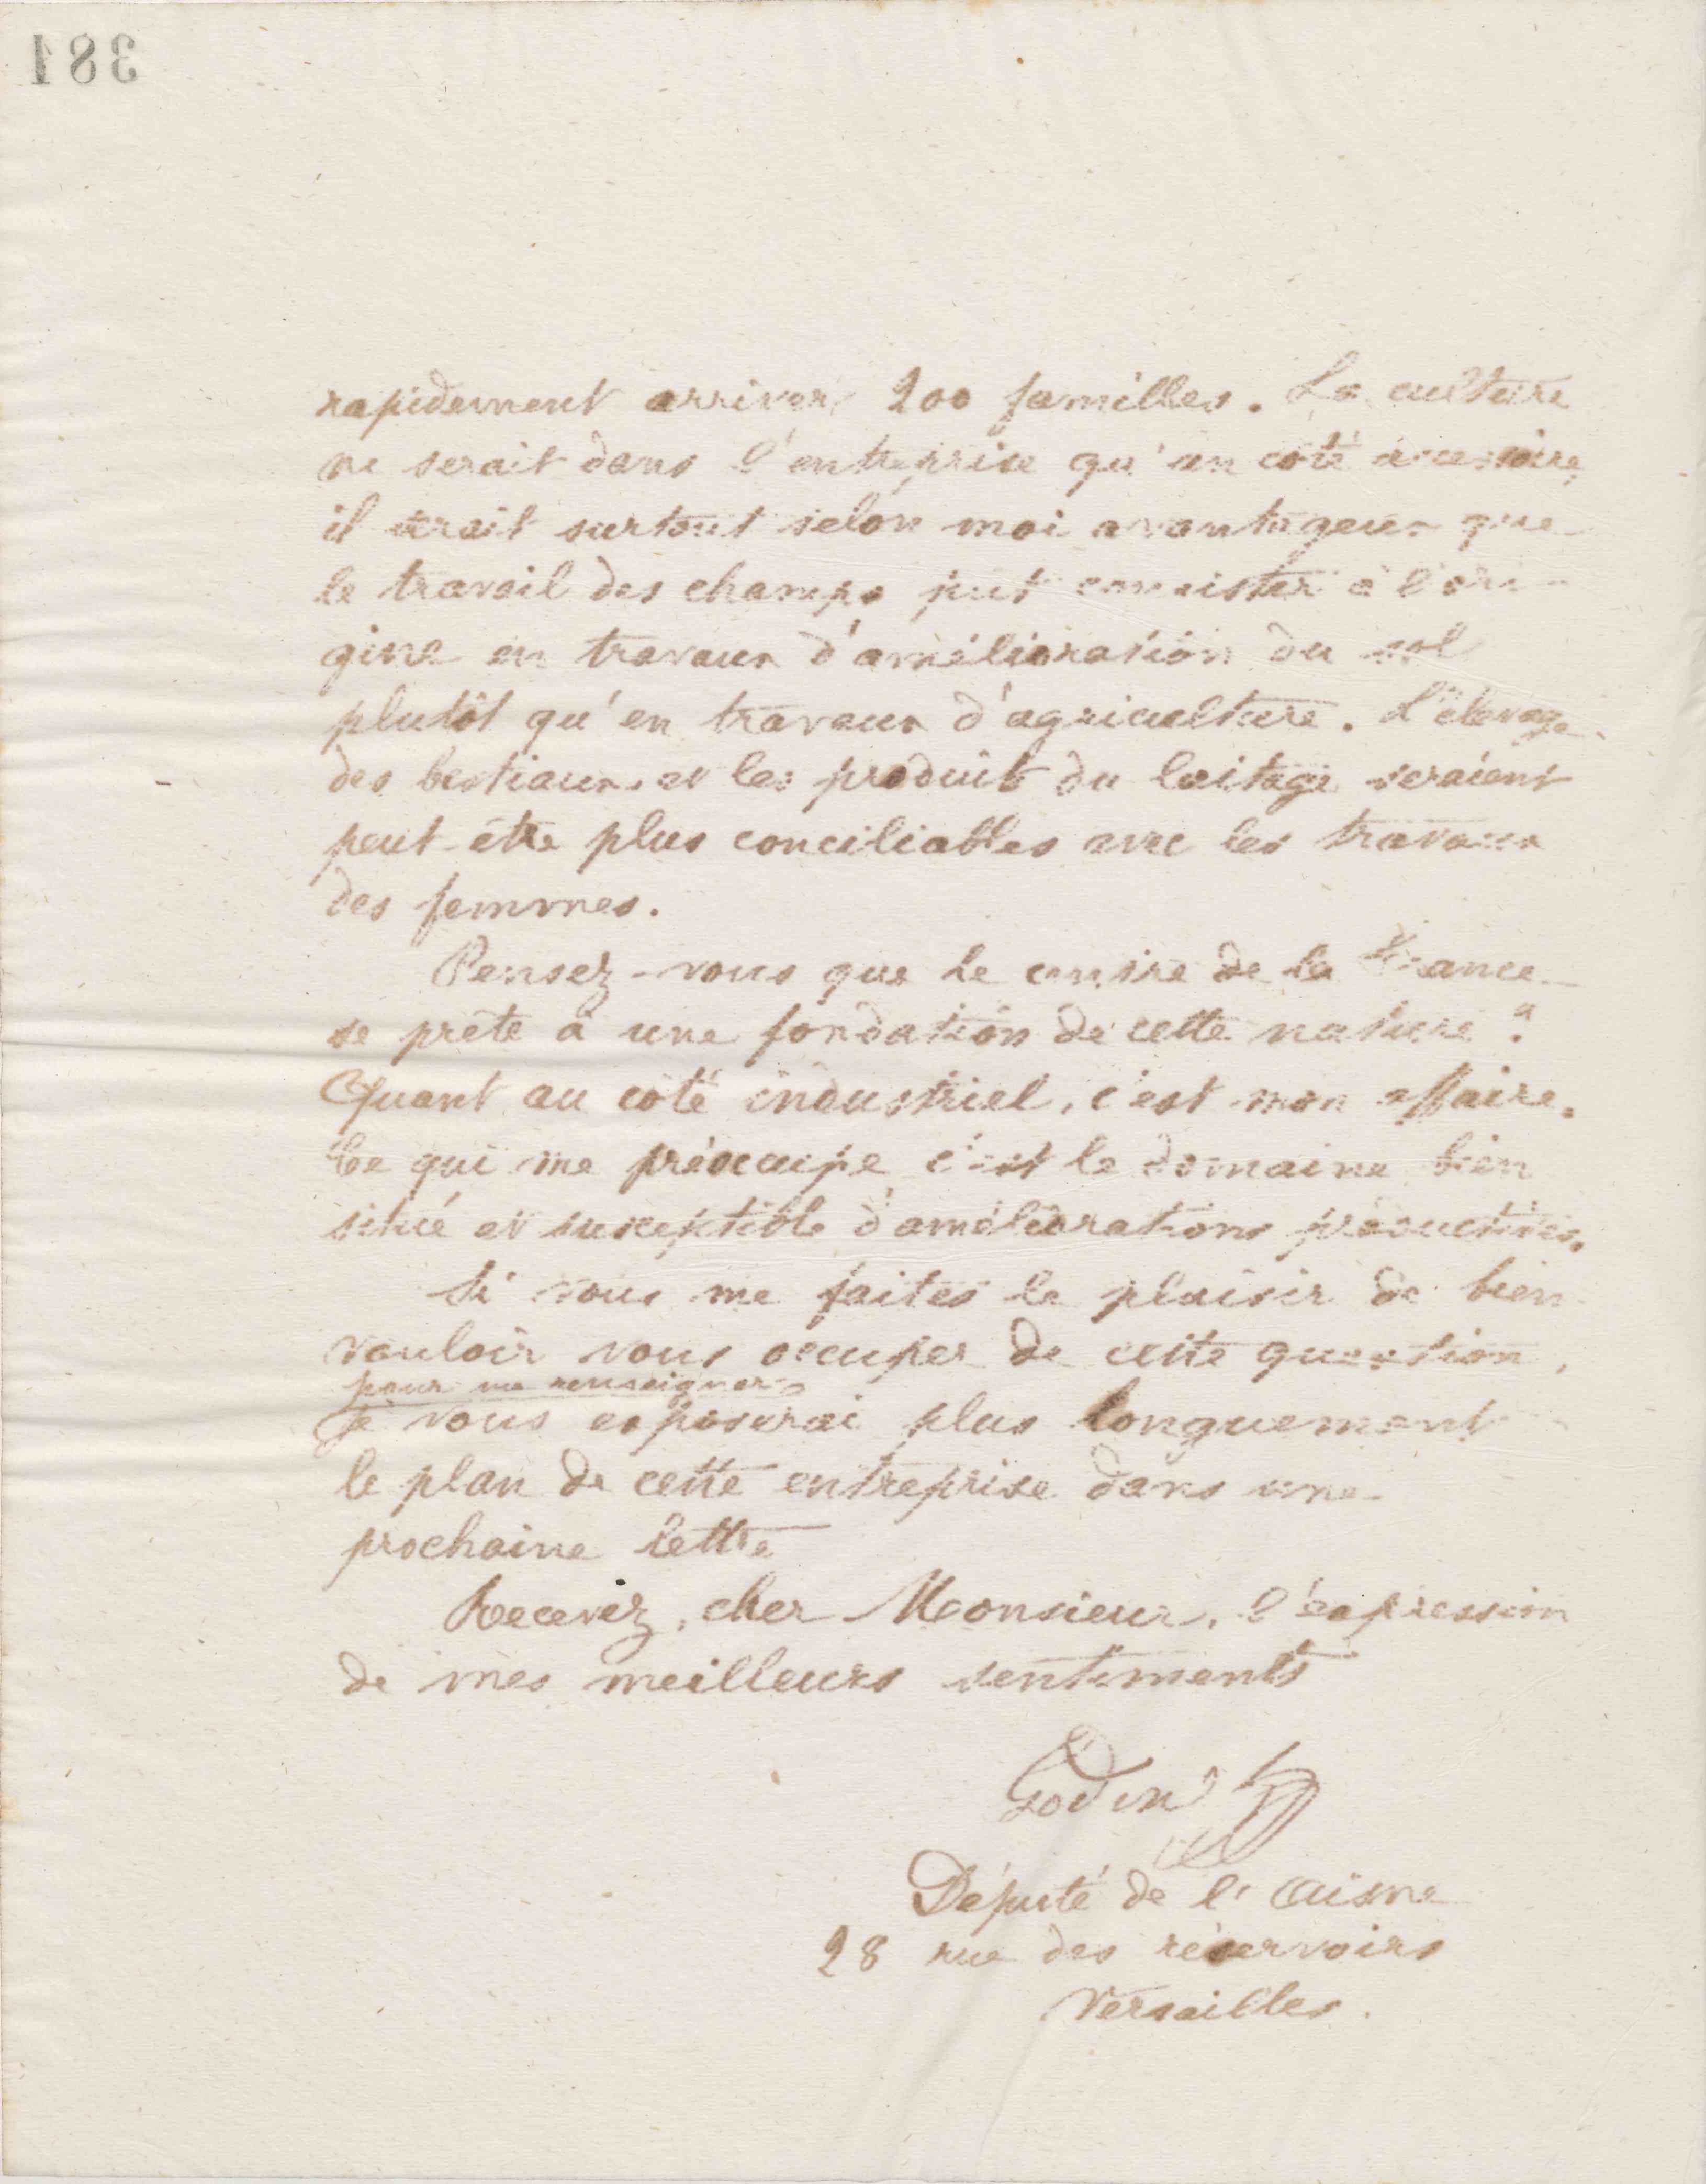 381
rapidement arriver 200 familles. La culture
ne serait dans l'entreprise qu'un côté accessoire,
il serait surtout selon moi avantageux que
le travail des champs put consister à l'ori-
gine en travaux d'amélioration du sol
plutôt qu'en travaux d'agriculture. L'élevage
des bestiaux et les produits du laitage seraient
peut-être plus conciliables avec les travaux
des femmes.
Pensez-vous que le centre de la France
se prête à une fondation de cette nature ?
Quant au côté industriel, c'est mon affaire.
Ce qui me préoccupe c'est le domaine bien
situé et susceptible d'améliorations productives.
Si vous me faites le plaisir de bien
vouloir vous occuper de cette question,
pour me renseigner
je vous exposerai plus longuement
le plan de cette entreprise dans une
prochaine lettre
Recevez, cher Monsieur, l'expression
de mes meilleurs sentiments
Godin
Député de l'Aisne
28 rue des réservoirs
Versailles.